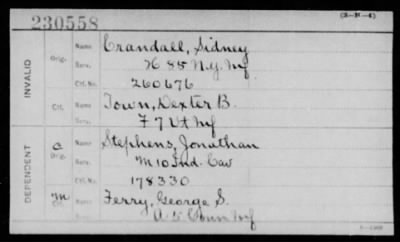 230558
(3-M-4)
INVALID
Orig. Name Crandall, Sidney
Serv. K 85 N.Y. Inf
Ctf. No. 260676
Ctf. Name Town, Dexter B.
Serv. F 7 Vt Inf
DEPENDENT
C Orig. Name Stephens, Jonathan
Serv. M 10 Ind. Cav
Ctf. No. 178330
M Ctf. Name Ferry, George S.
Serv. A 5 Conn Inf